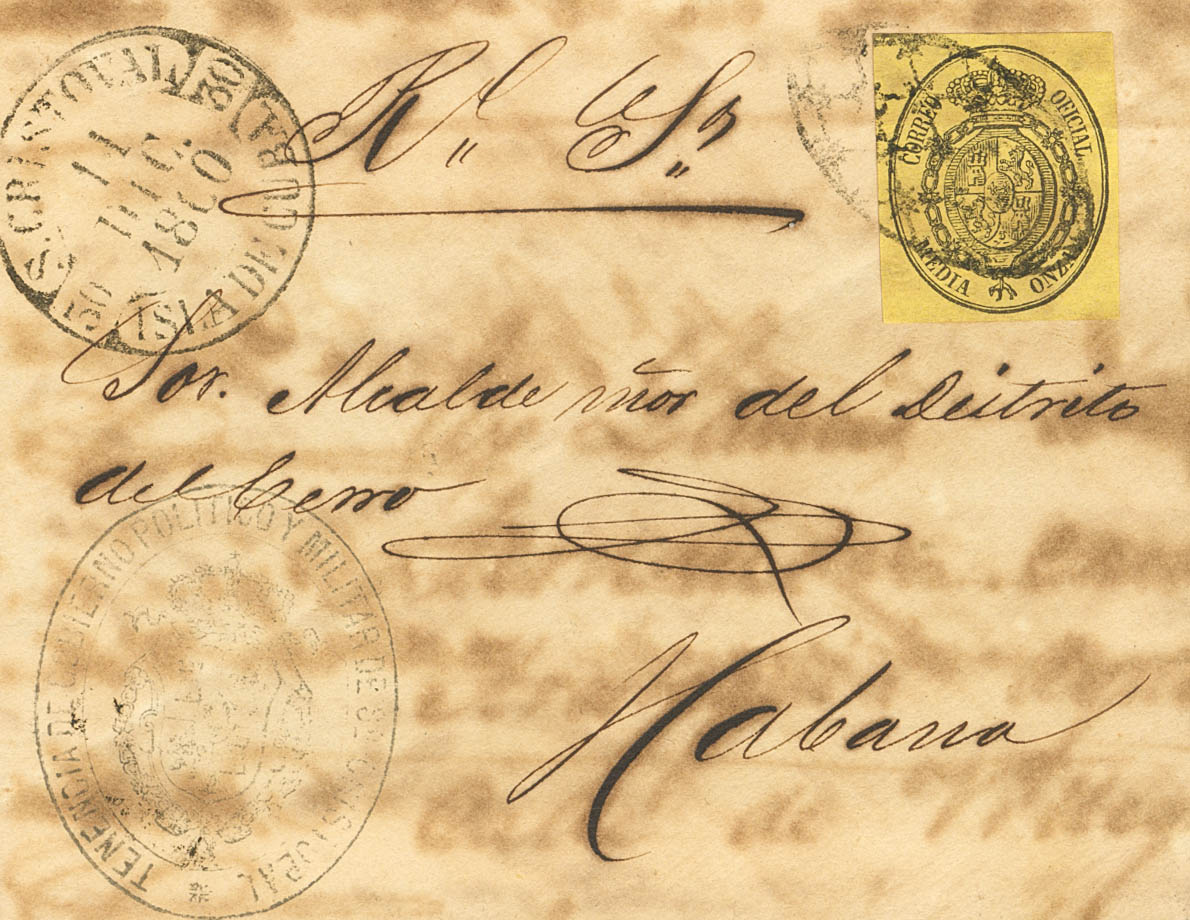 S. CRISTOVAL
30
11
DIC.
1860
30
ISLA DE CUBA
Rl. So
CORREO OFICIAL
MEDIA ONZA
Sor. Alcalde mor del Distrito
del Cerro
Habana
TENENCIA DE GOBIERNO POLITICO Y MILITAR DE Sn CRISTOBAL